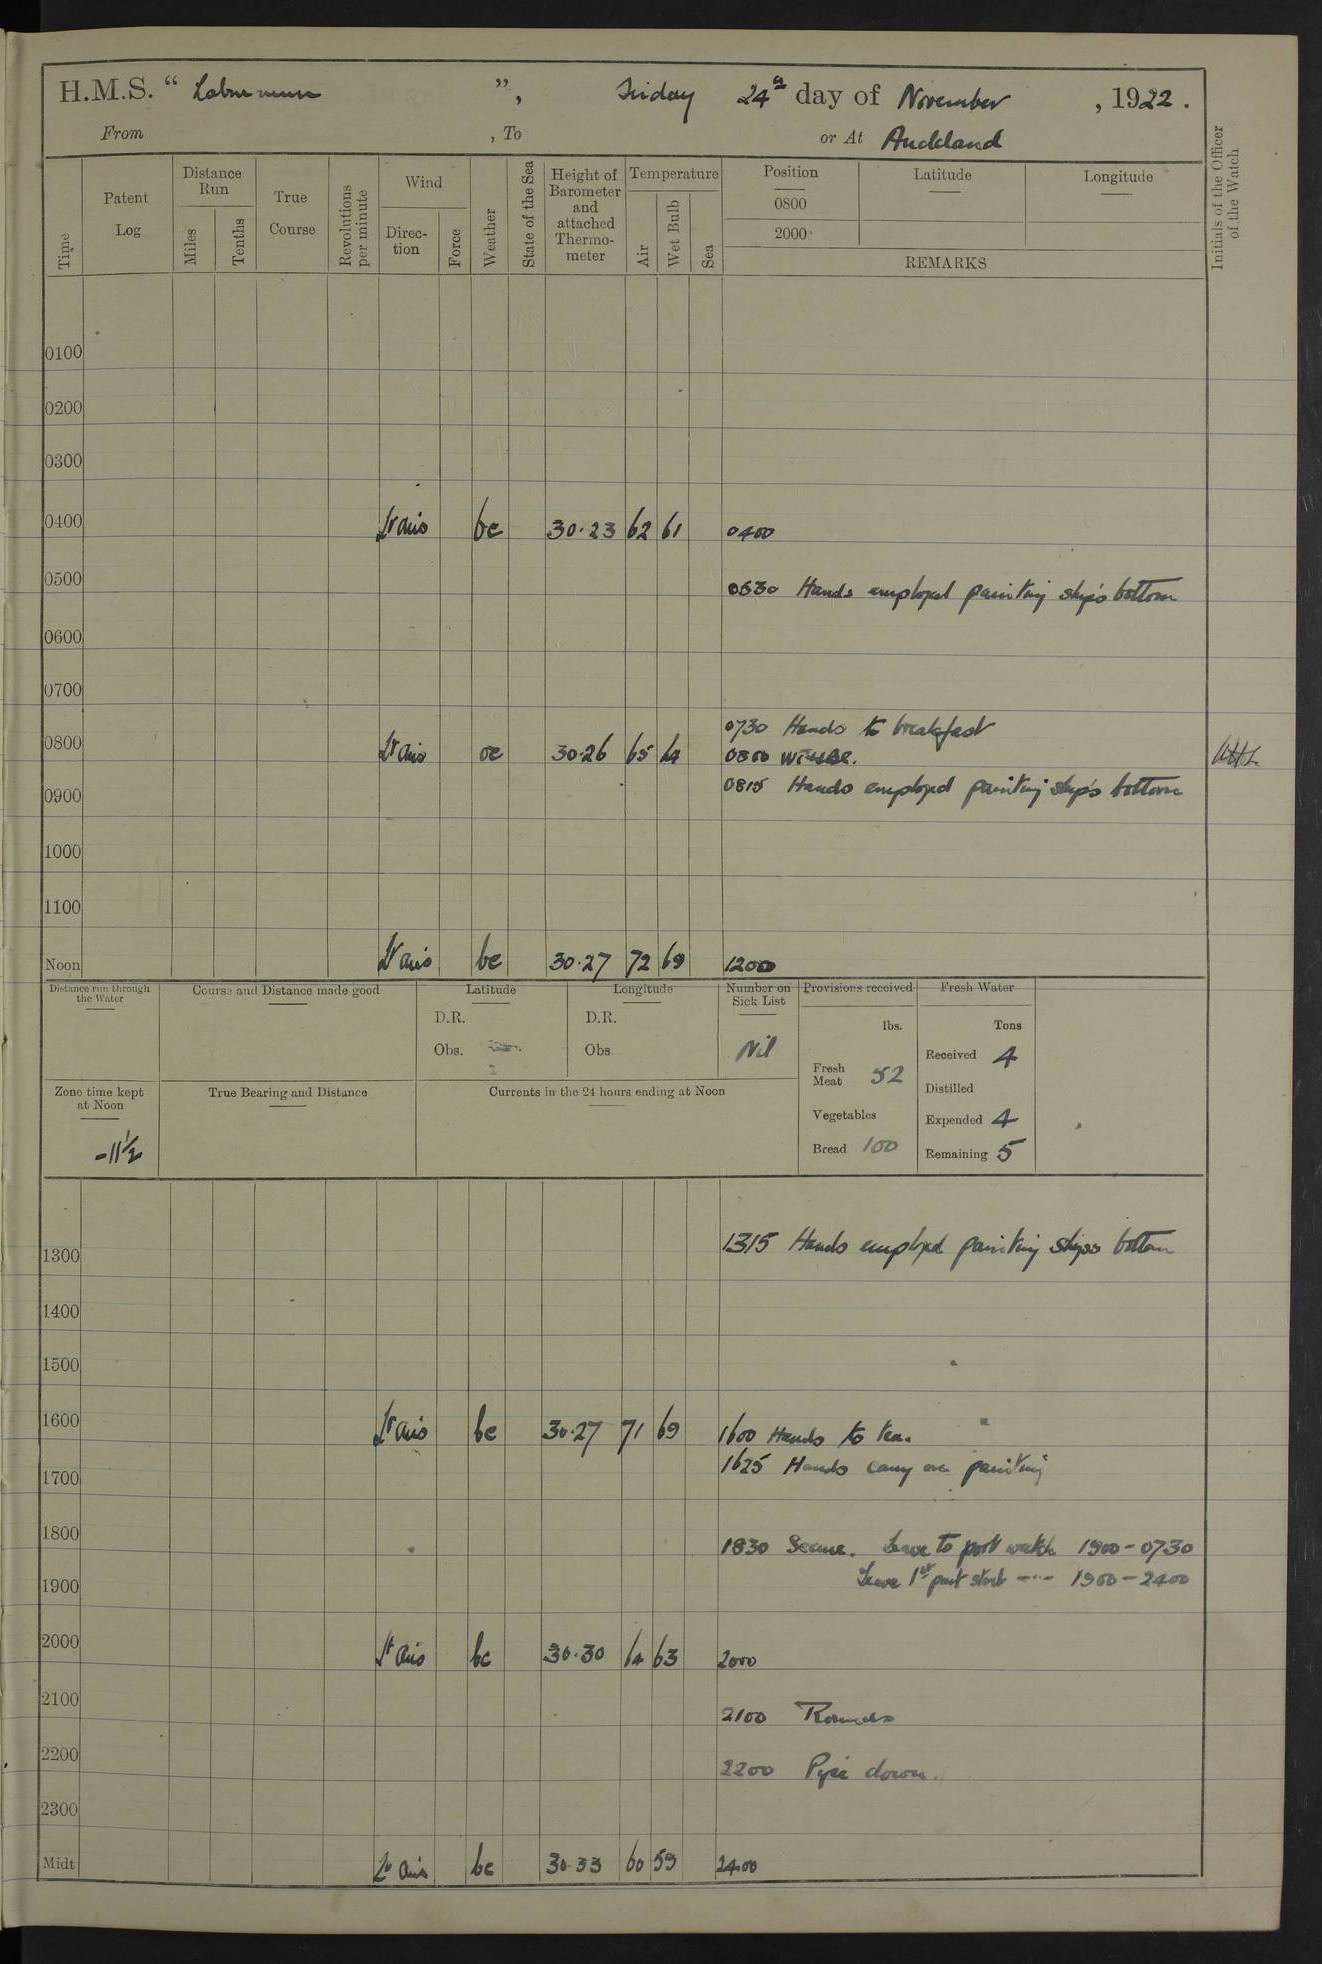 H.M.S. “ Laburnum ”, Friday 24th day of November , 1922.
From , To or At Auckland
Time
Patent Log
Distance Run
Miles
Tenths
True Course
Revolutions per minute
Wind
Direction
Force
Weather
State of the Sea
Height of Barometer and attached Thermometer
Temperature
Air
Wet Bulb
Sea
Position
0800
2000
Latitude
Longitude
REMARKS
Initials of the Officer of the Watch
0100
0200
0300
0400 Lt airs bc 30.23 62 61 0400
0500
0530 Hands employed painting ship's bottom
0600
0700
0730 Hands to breakfast
0800 Lt airs bc 30.26 65 64 0800
0815 Hands employed painting ship's bottom
0900
1000
1100
Noon Lt airs bc 30.27 72 69 1200
Distance run through the Water
Course and Distance made good
Latitude
D.R.
Obs.
Longitude
D.R.
Obs.
Number on Sick List
Nil
Provisions received
lbs.
Fresh Meat 52
Vegetables
Bread 100
Fresh Water
Tons
Received 4
Distilled
Expended 4
Remaining 5
Zone time kept at Noon
-11½
True Bearing and Distance
Currents in the 24 hours ending at Noon
1315 Hands employed painting ships bottom
1300
1400
1500
1600 Lt airs bc 30.27 71 69 1600 Hands to tea.
1625 Hands carry on painting
1700
1800
1830 Secure. Leave to port watch 1900-0730
Leave 1st part stbd --- 1900-2400
1900
2000 Lt airs bc 30.30 64 63 2000
2100
2100 Rounds
2200
2200 Pipe down.
2300
Midt Lt airs bc 30.33 60 59 2400